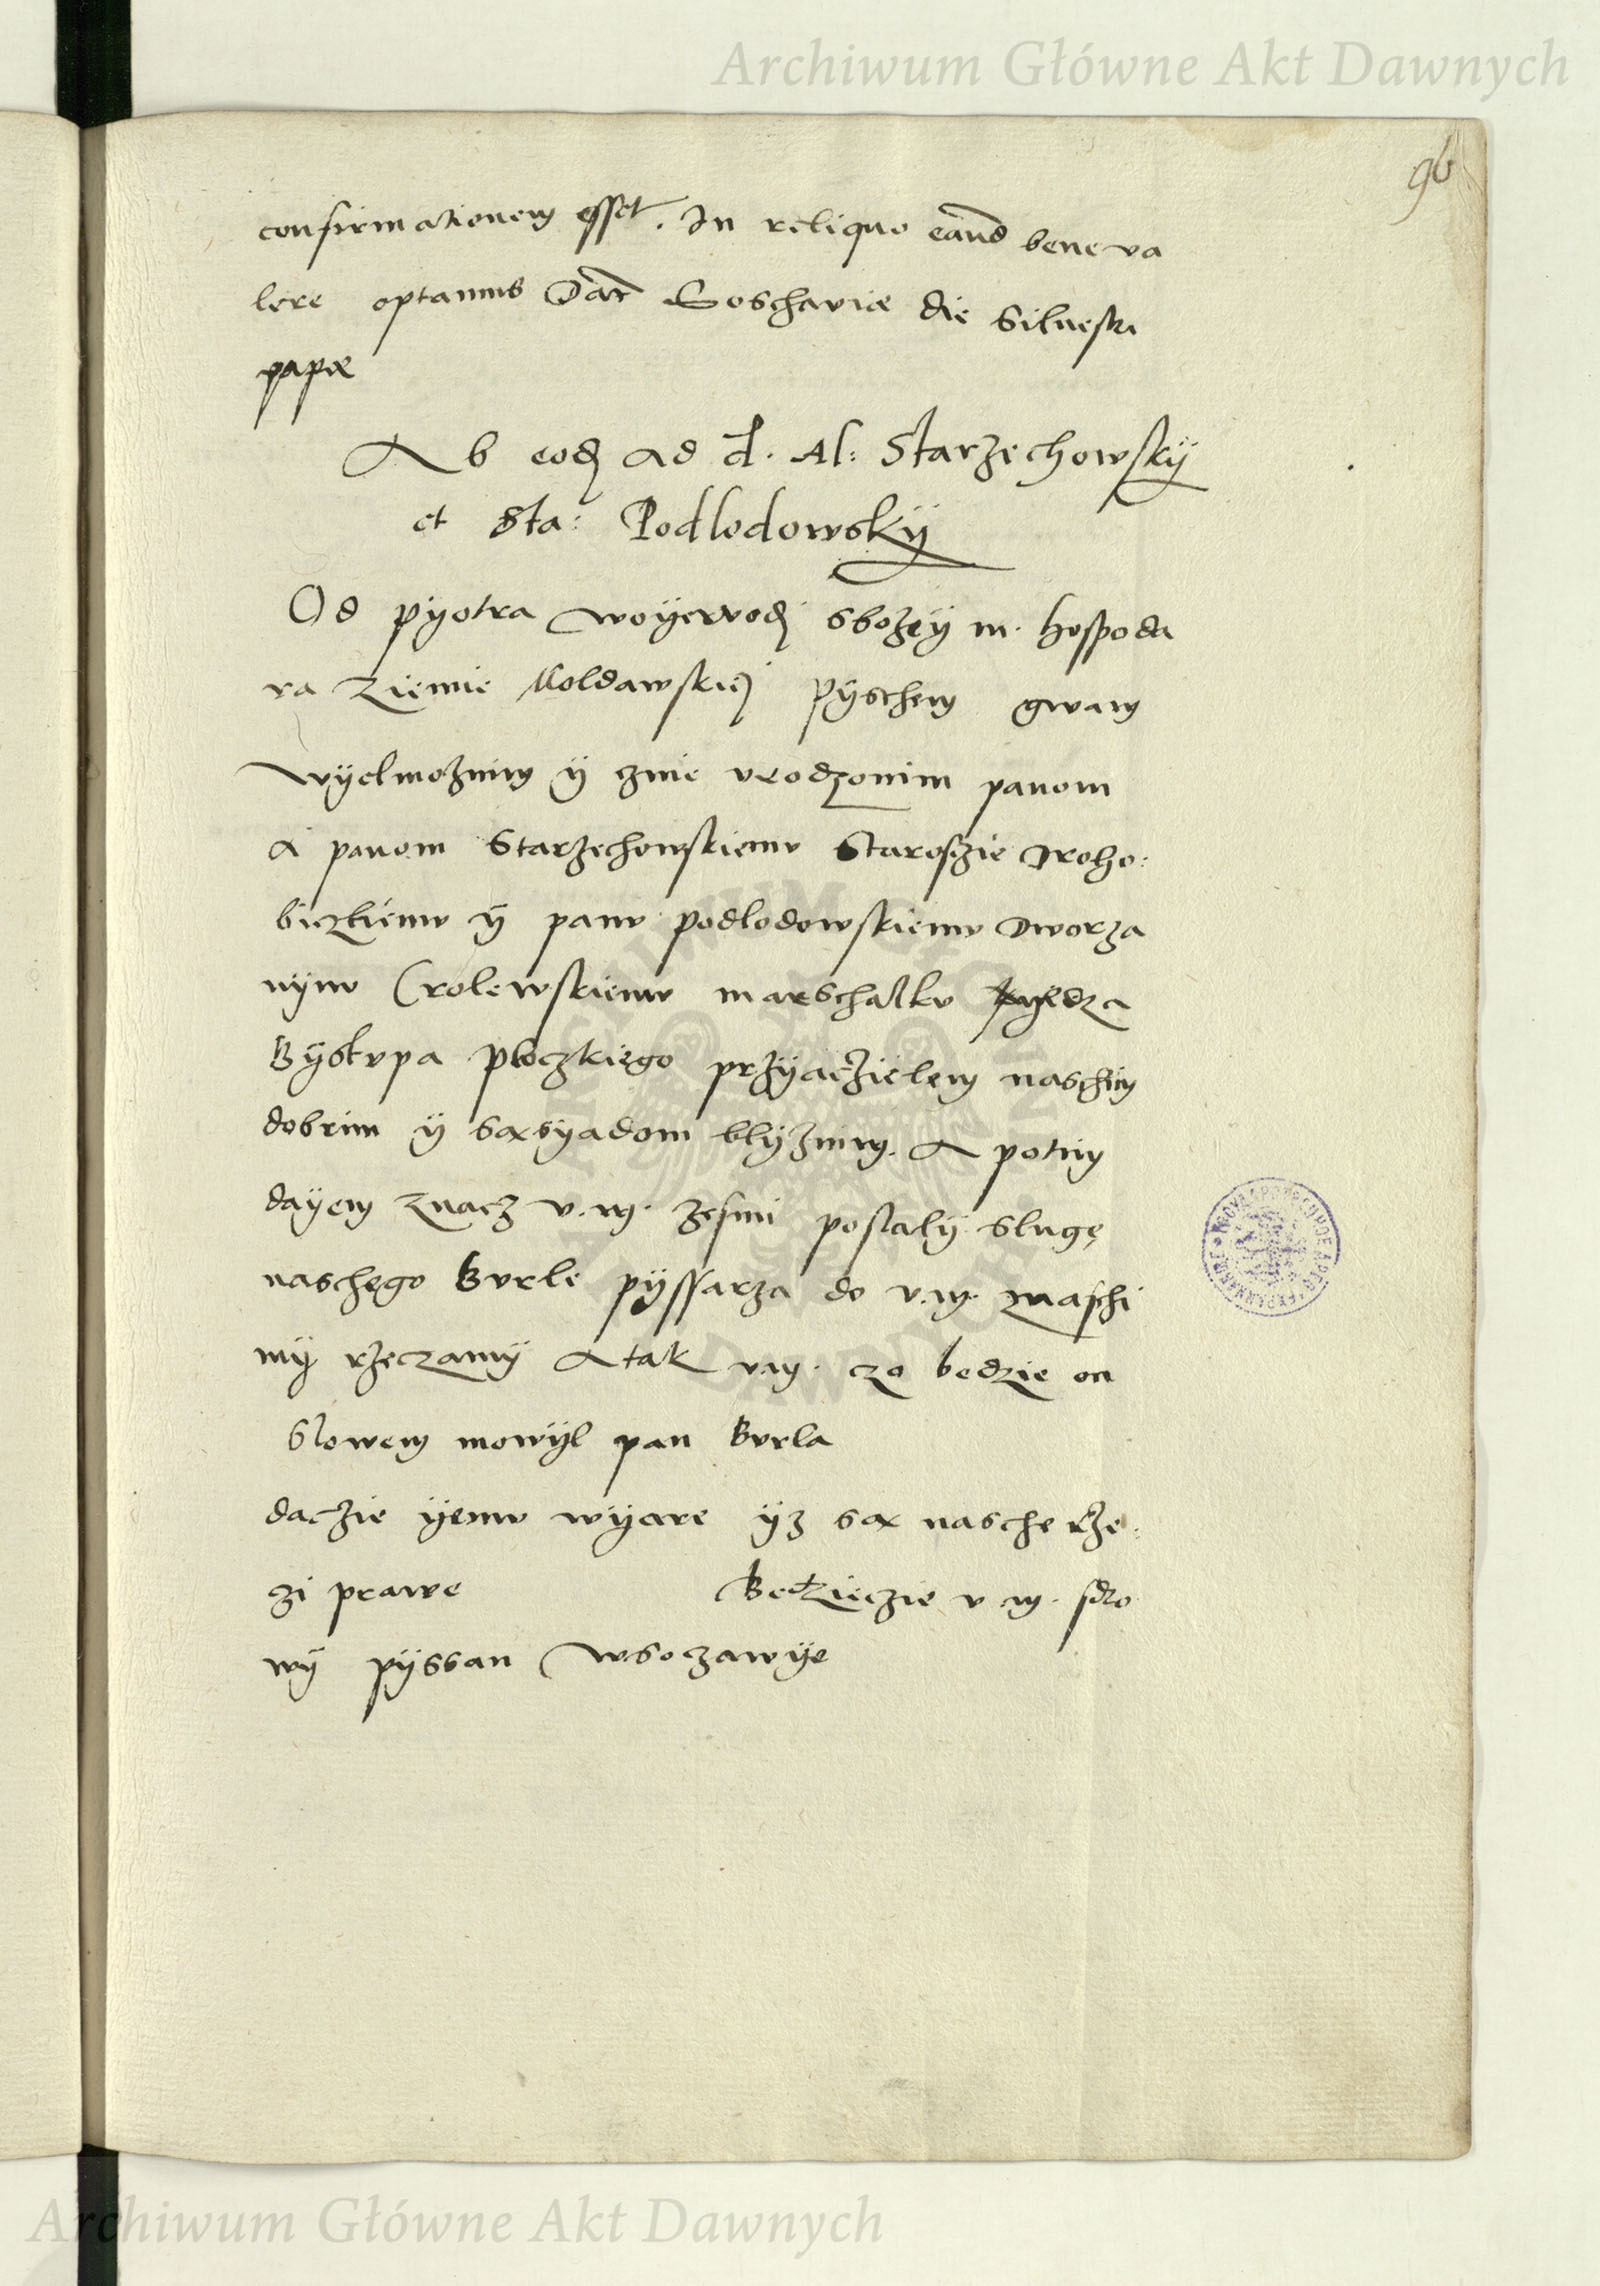 Archiwum Główne Akt Dawnych
96
confirmationem esset. In reliquo eand bene va
lere optamus Dat Soschaviæ die Siluestri
papæ
Ab eod ad d. Al: Starzechowskÿ
et Sta: Podlodowskÿ
Od pÿotra woÿewodj sbożeÿ m. hospoda
ra Ziemie Moldawskiej pÿschem gwam
wÿelmożnim ÿ znie vrodzonim panom
A panom Starzechowskiemv Starosczie droho:
biczkiemv ÿ panv podlodowskiemv dworza
nÿnv Crolewskiemv marschalkv xÿedza
Bÿskvpa ploczkiego przÿaczielem naschim
dobrim ÿ sasÿadom blÿznim. A potim
daÿem znacz v. m. zesmi poslalÿ slugę
naschego Bvrle pÿssarza do v.m. znaschi
mÿ rzeczamÿ A tak v.m. czo bedzie on
slowem mowÿl pan Bvrla
daczie ÿemv wÿare ÿz sa nasche rze:
czi prawe Bedzieczie v m. sdro
wÿ pÿssan wsoczawÿe
Archiwum Główne Akt Dawnych